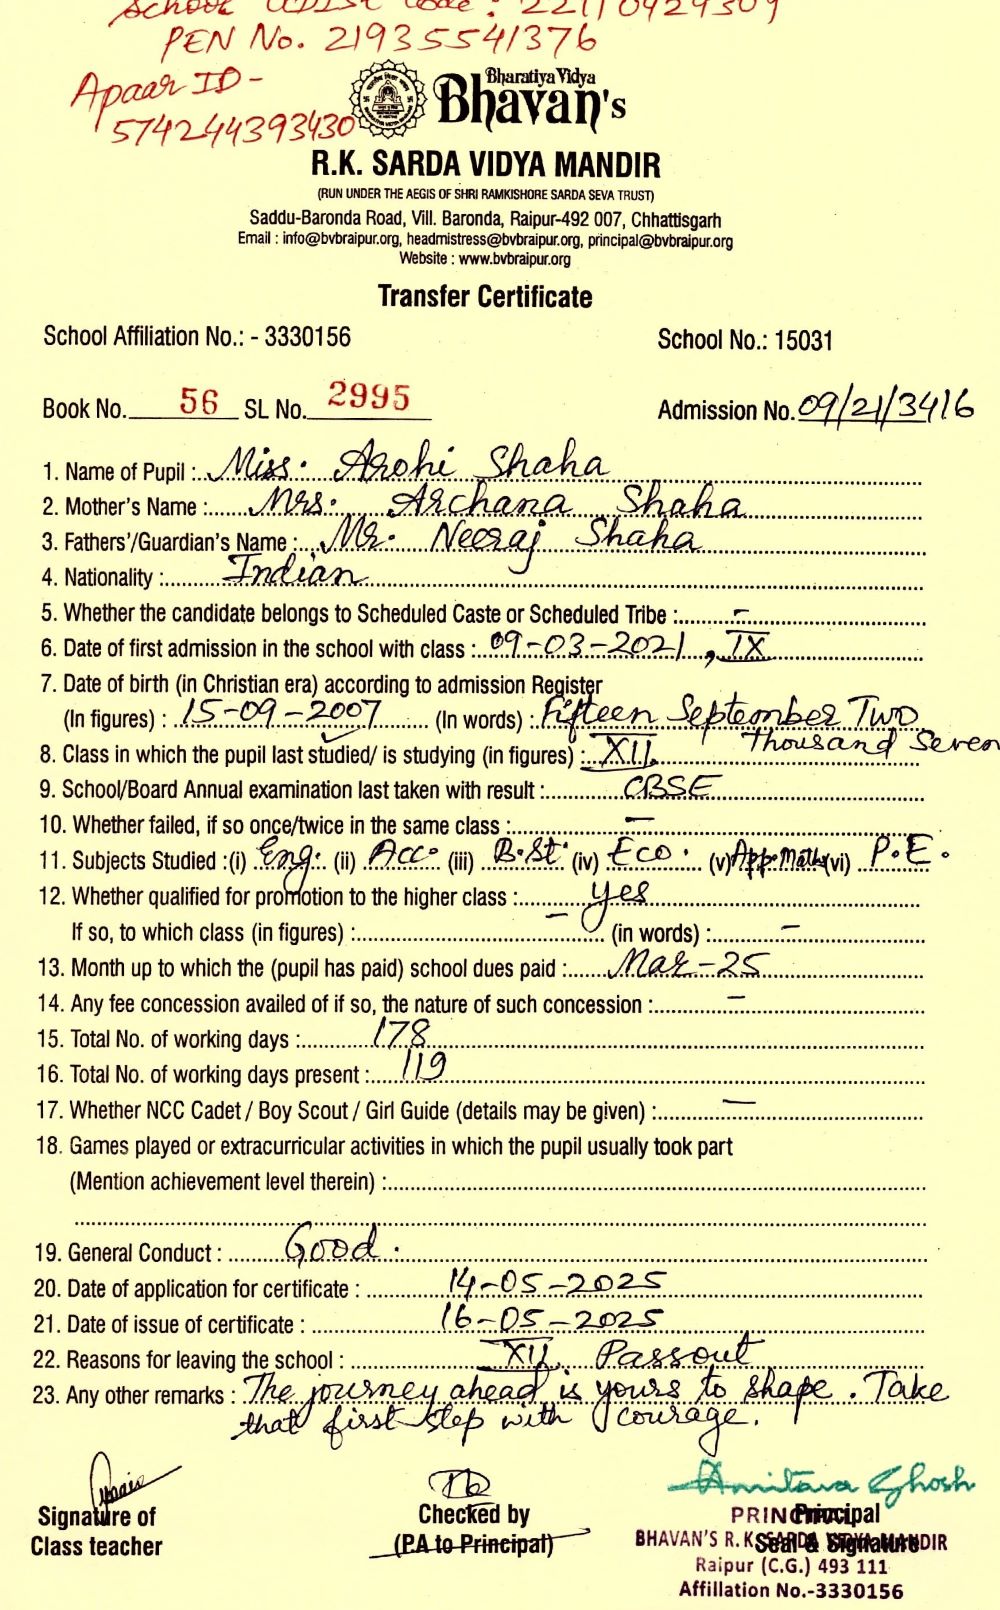 School UDISE Code: 22110429309
PEN No. 21935541376
Apaar ID -
574244393430
Bharatiya Vidya
Bhavan's
R.K. SARDA VIDYA MANDIR
(RUN UNDER THE AEGIS OF SHRI RAMKISHORE SARDA SEVA TRUST)
Saddu-Baronda Road, Vill. Baronda, Raipur-492 007, Chhattisgarh
Email : info@bvbraipur.org, headmistress@bvbraipur.org, principal@bvbraipur.org
Website : www.bvbraipur.org
Transfer Certificate
School Affiliation No.: - 3330156 School No.: 15031
Book No. 56 SL No. 2995 Admission No. 09/21/3416
1. Name of Pupil : Miss. Arohi Shaha
2. Mother's Name : Mrs. Archana Shaha
3. Fathers'/Guardian's Name : Mr. Neeraj Shaha
4. Nationality : Indian
5. Whether the candidate belongs to Scheduled Caste or Scheduled Tribe : -
6. Date of first admission in the school with class : 09-03-2021, IX
7. Date of birth (in Christian era) according to admission Register
(In figures) : 15-09-2007 (In words) : Fifteen September Two
Thousand Seven
8. Class in which the pupil last studied/ is studying (in figures) : XII.
9. School/Board Annual examination last taken with result : CBSE
10. Whether failed, if so once/twice in the same class : -
11. Subjects Studied :(i) Eng. (ii) Acc. (iii) B.St. (iv) Eco. (v) App. Math (vi) P.E.
12. Whether qualified for promotion to the higher class : yes
If so, to which class (in figures) : - (in words) : -
13. Month up to which the (pupil has paid) school dues paid : Mar-25
14. Any fee concession availed of if so, the nature of such concession : -
15. Total No. of working days : 178
16. Total No. of working days present : 119
17. Whether NCC Cadet / Boy Scout / Girl Guide (details may be given) : -
18. Games played or extracurricular activities in which the pupil usually took part
(Mention achievement level therein) :
19. General Conduct : Good.
20. Date of application for certificate : 14-05-2025
21. Date of issue of certificate : 16-05-2025
22. Reasons for leaving the school : XII. Passout
23. Any other remarks : The journey ahead is yours to shape. Take
that first step with courage.
Amitava Ghosh
Signature of Checked by Principal
Class teacher (P.A to Principal) Seal & Signature
PRINCIPAL
BHAVAN'S R. K. SARDA VIDYA MANDIR
Raipur (C.G.) 493 111
Affillation No.-3330156